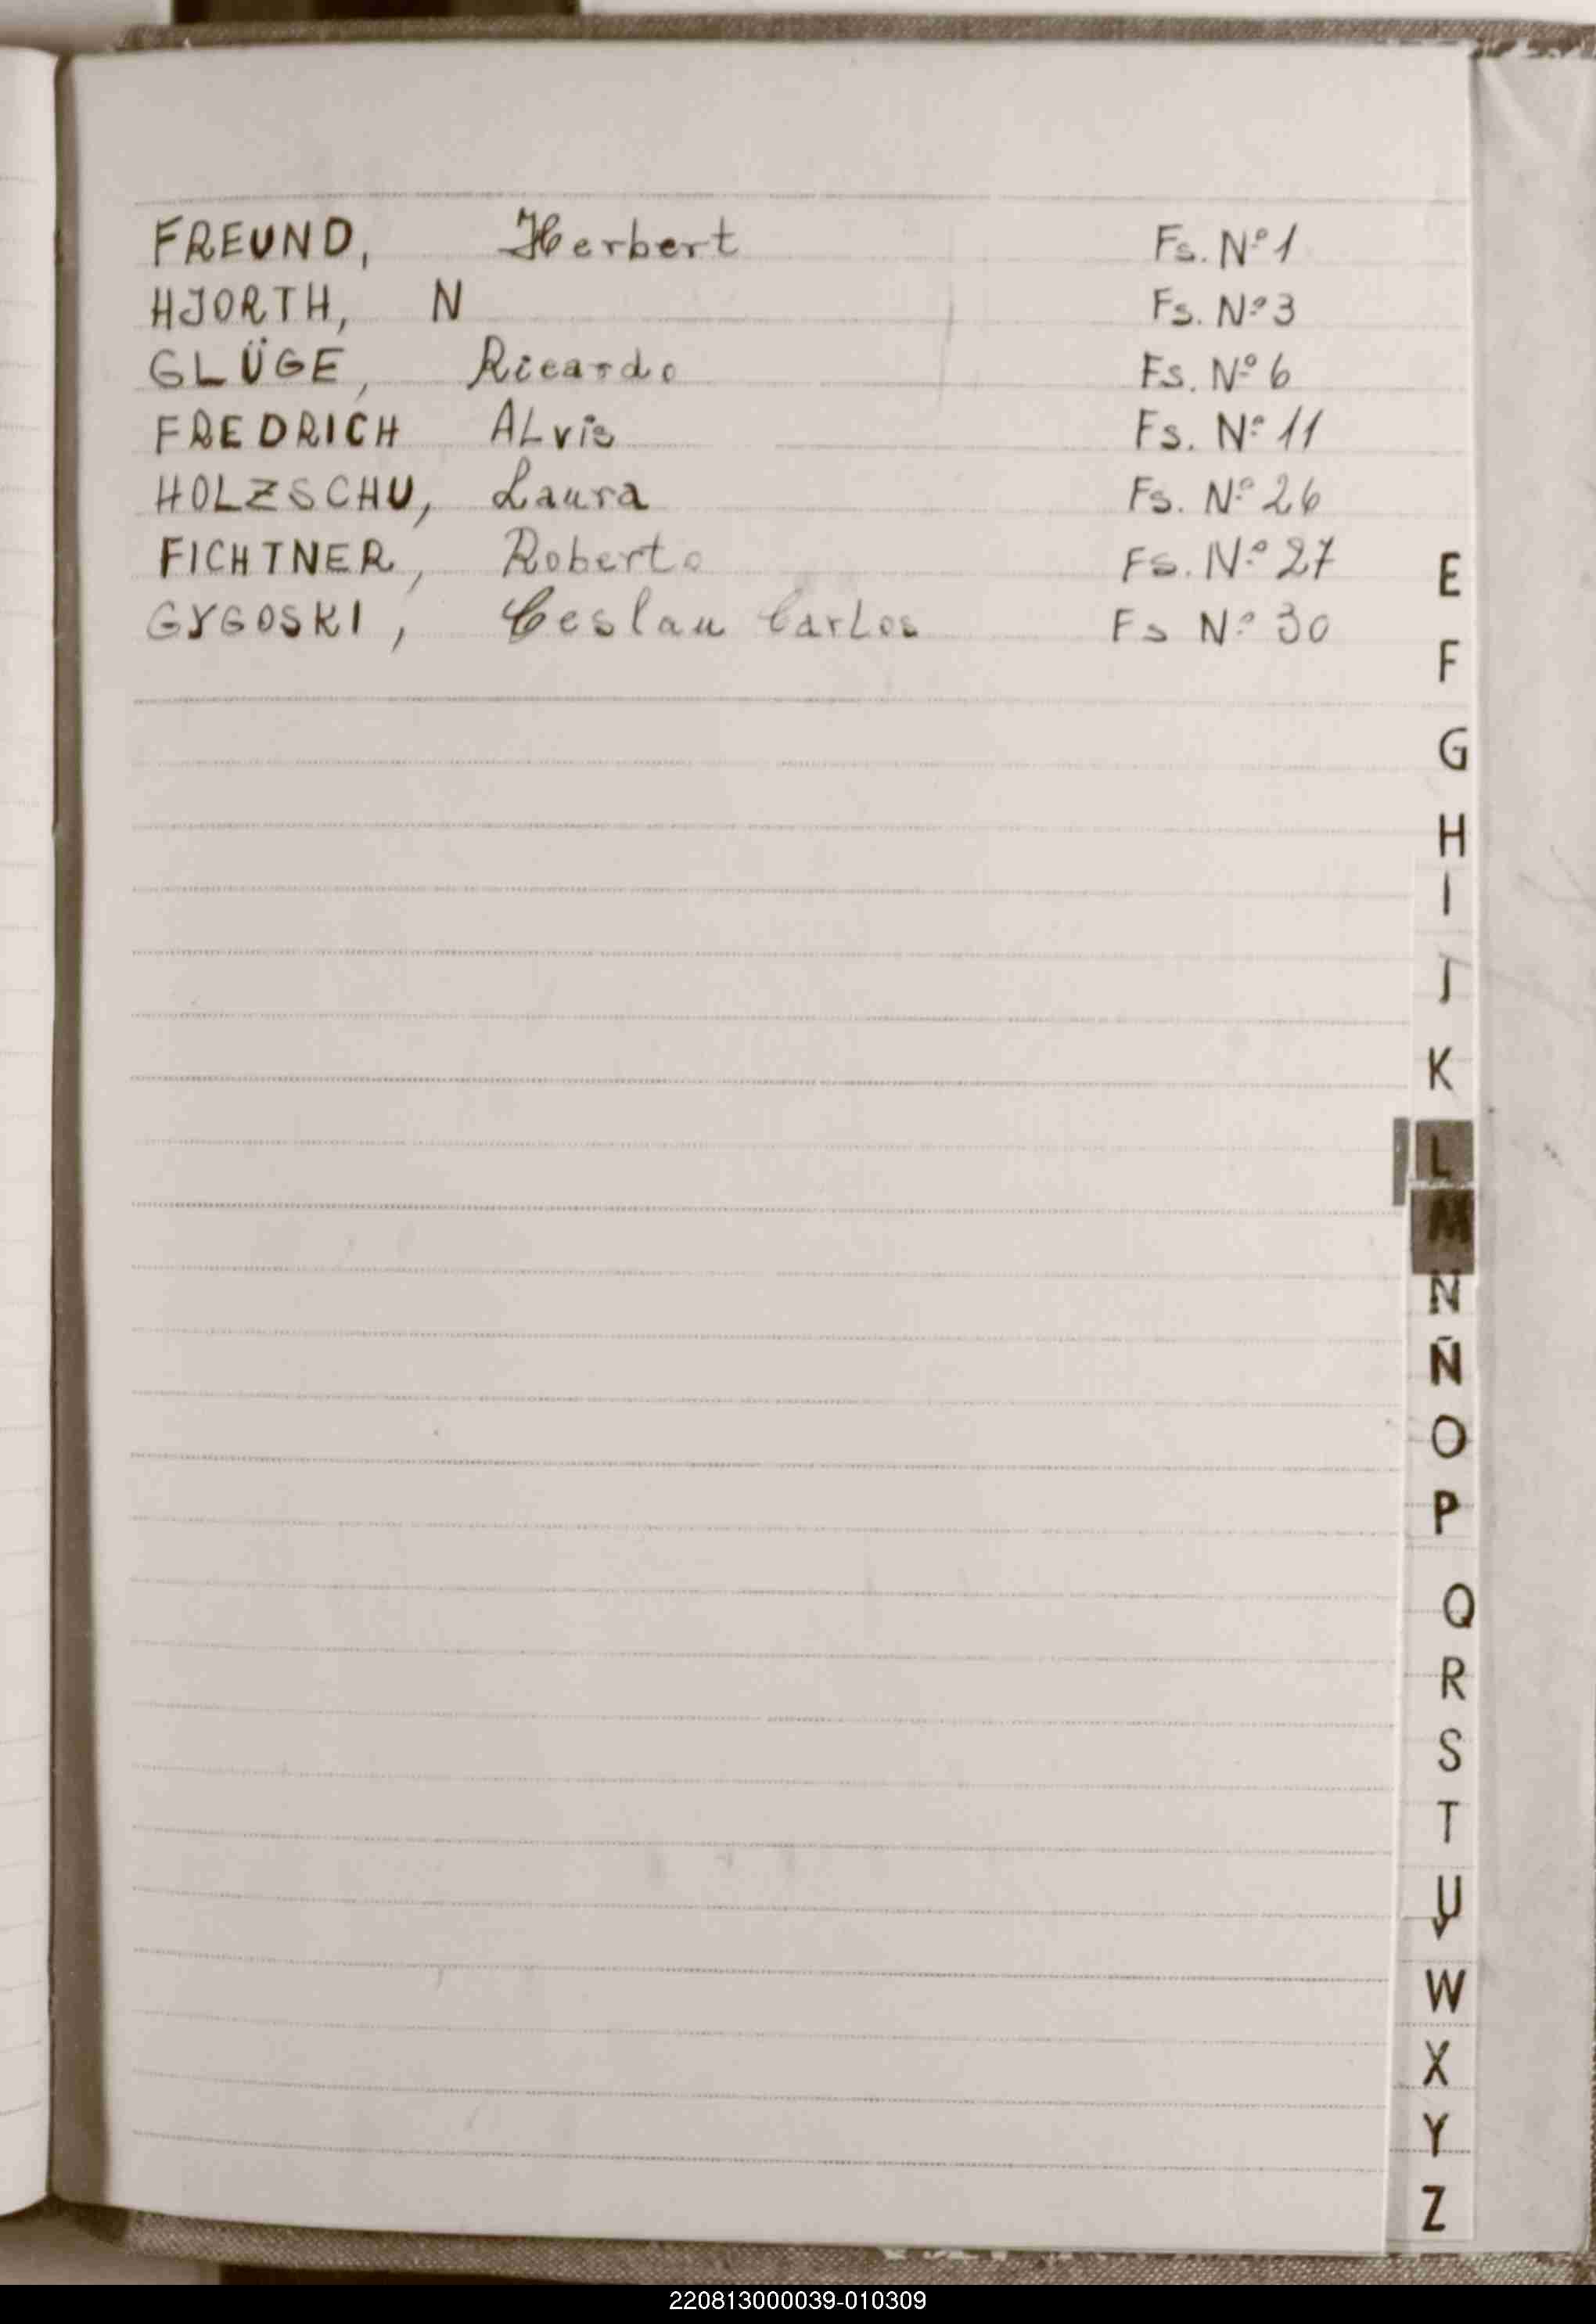 FREUND, Herbert Fs. Nº 1
HJORTH, N Fs. Nº 3
GLÜGE, Ricardo Fs. Nº 6
FREDRICH ALvis Fs. Nº 11
HOLZSCHU, Laura Fs. Nº 26
FICHTNER, Roberto Fs. Nº 27
GYGOSKI, Ceslau Carlos Fs Nº 30
E
F
G
H
I
J
K
L
M
N
Ñ
O
P
Q
R
S
T
U
V
W
X
Y
Z
220813000039-010309